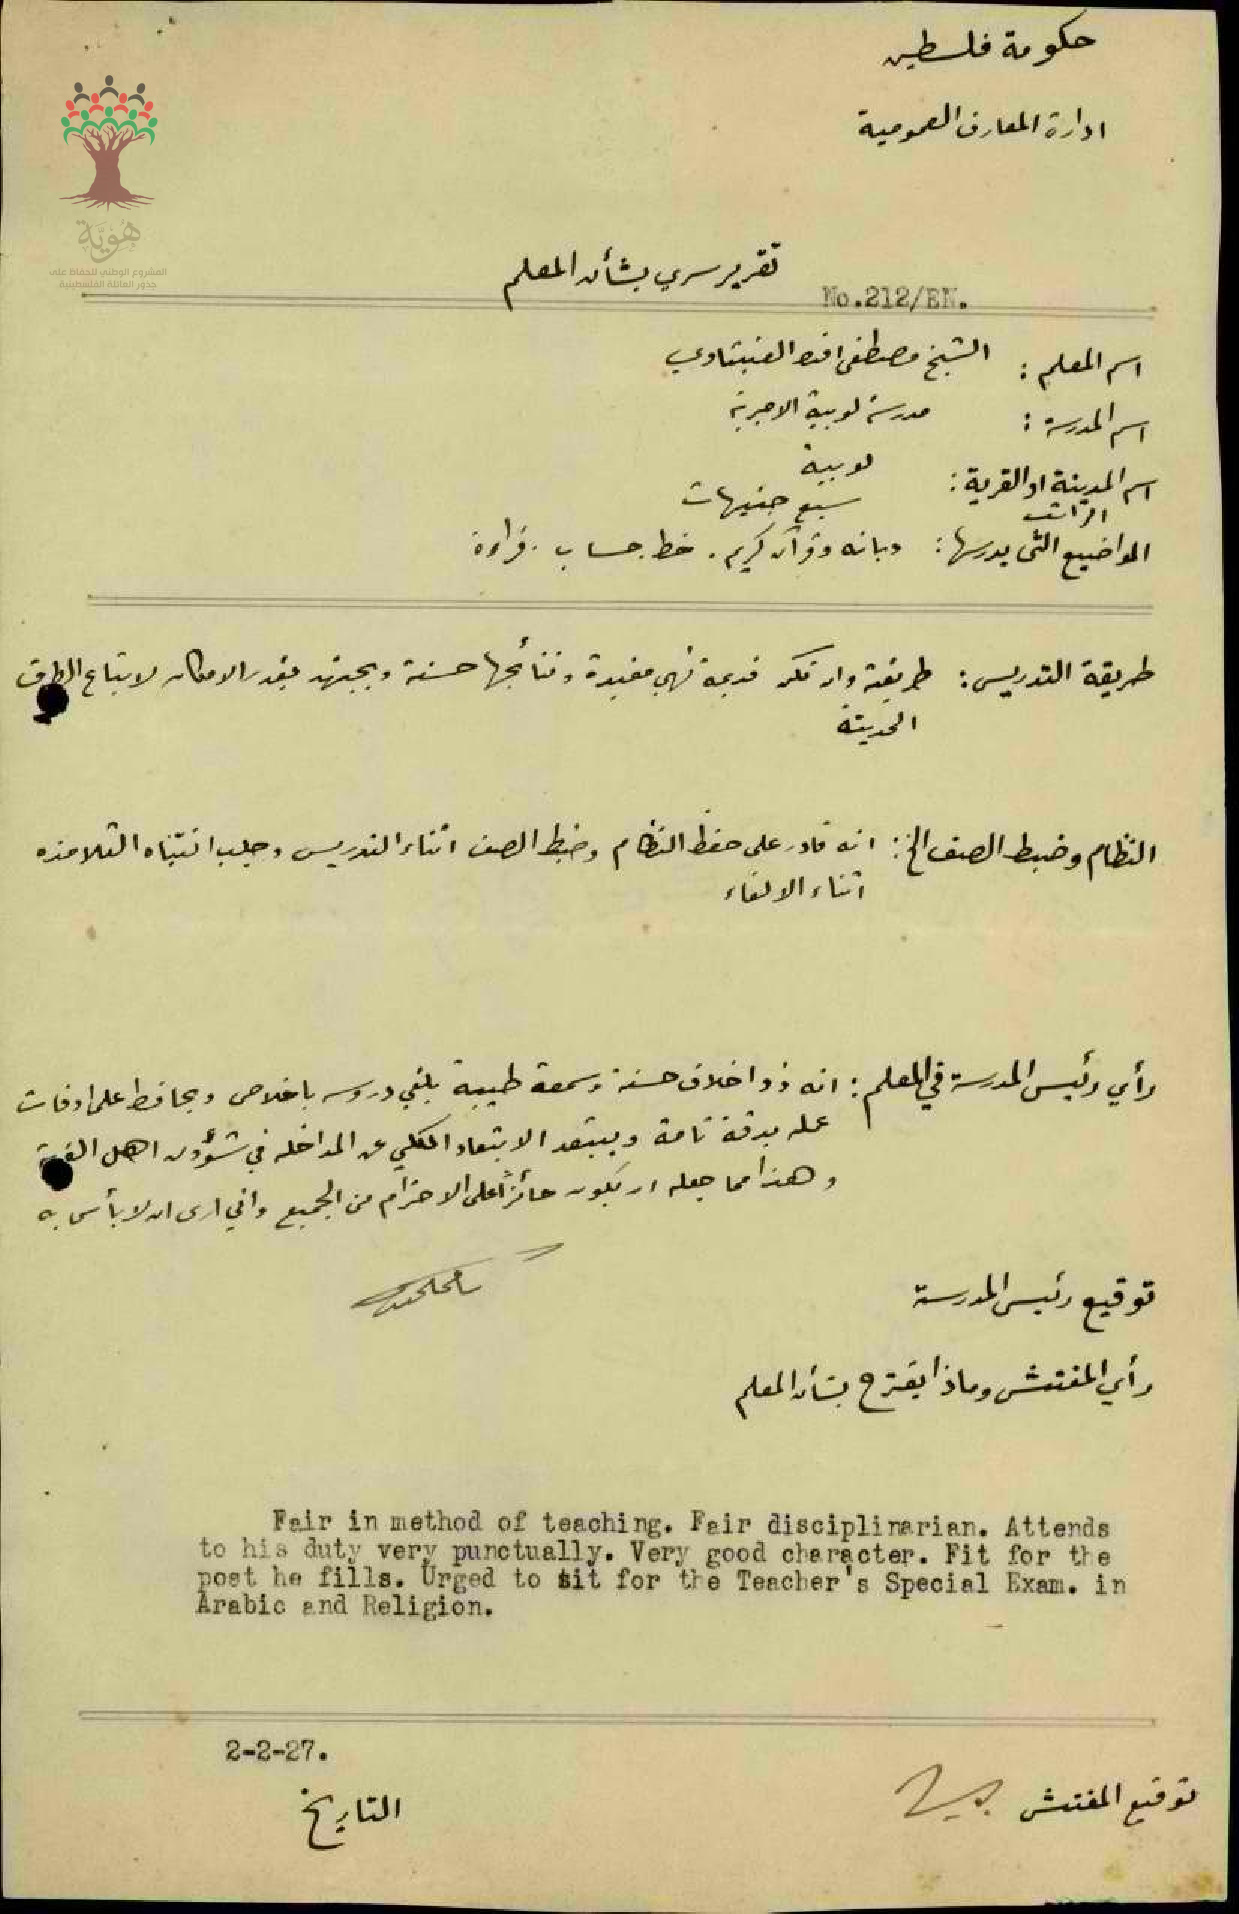 حكومة فلسطين
ادارة المعارف العمومية
هُوِيَّة
المشروع الوطني للحفاظ على
جذور العائلة الفلسطينية
تقرير سري بشأن المعلم
No.212/EN.
اسم المعلم : الشيخ مصطفى افندي
اسم المدرسة : مدرسة لوبية الاميرية
اسم المدينة او القرية : لوبية
الراتب سبع جنيهات
المواضيع التي يدرسها : ديانه وقرآن كريم . خط . حساب . قراءة
طريقة التدريس : طريقته وان تكن قديمة فهي مفيدة ونتائجها حسنة ويجتهد بقدر الامكان لاتباع الطرق
الحديثة
النظام وضبط الصف الخ : انه قادر على حفظ النظام وضبط الصف اثناء التدريس وجلب انتباه التلامذه
اثناء الالقاء
رأي رئيس المدرسة في المعلم : انه ذو اخلاق حسنة وسمعة طيبة يلقي دروسه باخلاص ويحافظ على اوقات
عمله بدقة تامة ويبتعد الابتعاد الكلي عن المداخله في شؤون اهل القرية
وهذا مما جعله ان يكون حائزاً على الاحترام من الجميع واني ارى ان لا بأس به
توقيع رئيس المدرسة
رأي المفتش وماذا يقترح بشأن المعلم
Fair in method of teaching. Fair disciplinarian. Attends
to his duty very punctually. Very good character. Fit for the
post he fills. Urged to sit for the Teacher's Special Exam. in
Arabic and Religion.
2-2-27.
توقيع المفتش
التاريخ